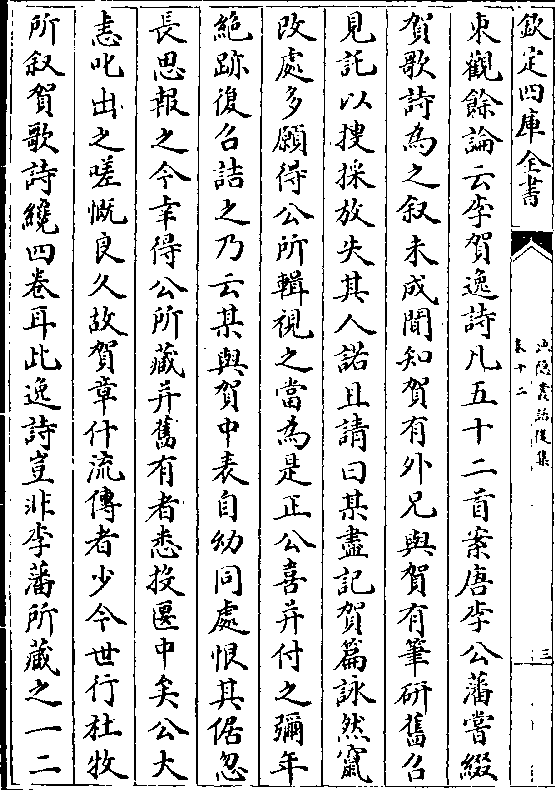 欽定四庫全書
漁隱叢話後集
卷十二
三
東觀餘論云李賀逸詩凡五十二首案唐李公藩嘗綴
賀歌詩為之叙未成聞知賀有外兄與賀有筆研舊召
見託以搜採放失其人諾且請曰某盡記賀篇詠然竄
改處多願得公所輯視之當為是正公喜并付之彌年
絶跡復召詰之乃云某與賀中表自幼同處恨其倨忽
長思報之今幸得公所藏并舊有者悉投匽中矣公大
恚叱出之嗟慨良久故賀章什流傳者少今世行杜牧
所叙賀歌詩纔四卷耳此逸詩豈非李藩所藏之一二